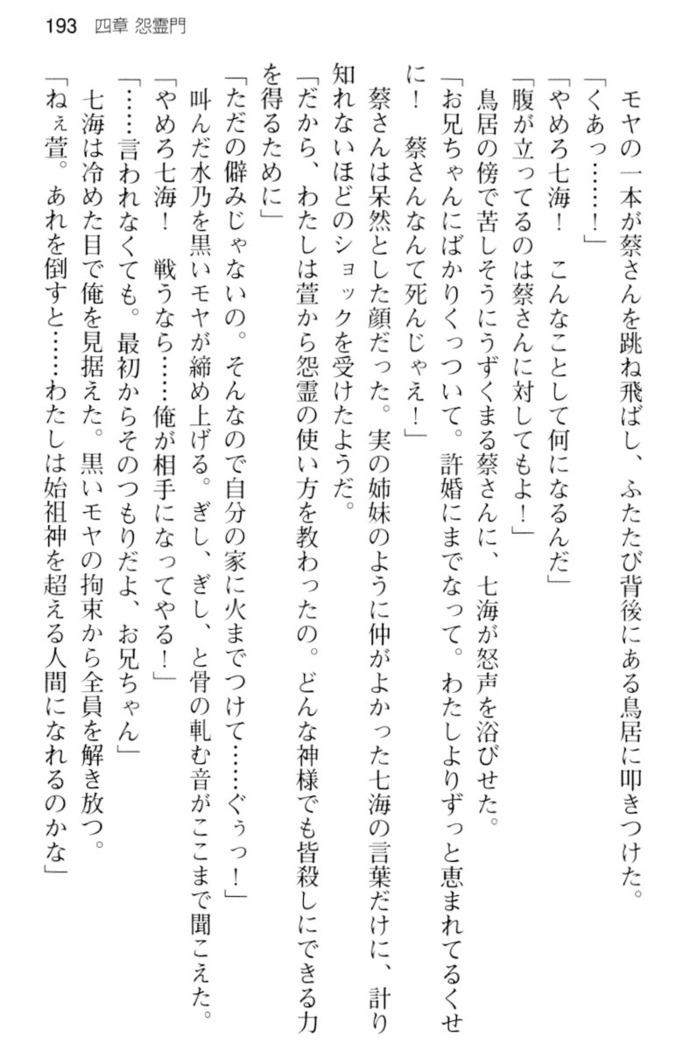 193 四章 怨霊門
モヤの一本が蔡さんを跳ね飛ばし、ふたたび背後にある鳥居に叩きつけた。
「くあっ……！」
「やめろ七海！　こんなことして何になるんだ」
「腹が立ってるのは蔡さんに対してもよ！」
鳥居の傍で苦しそうにうずくまる蔡さんに、七海が怒声を浴びせた。
「お兄ちゃんにばかりくっついて。許婚にまでなって。わたしよりずっと恵まれてるくせ
に！　蔡さんなんて死んじゃえ！」
蔡さんは呆然とした顔だった。実の姉妹のように仲がよかった七海の言葉だけに、計り
知れないほどのショックを受けたようだ。
「だから、わたしは萱から怨霊の使い方を教わったの。どんな神様でも皆殺しにできる力
を得るために」
「ただの僻みじゃないの。そんなので自分の家に火までつけて……ぐぅっ！」
叫んだ水乃を黒いモヤが締め上げる。ぎし、ぎし、と骨の軋む音がここまで聞こえた。
「やめろ七海！　戦うなら……俺が相手になってやる！」
「……言われなくても。最初からそのつもりだよ、お兄ちゃん」
七海は冷めた目で俺を見据えた。黒いモヤの拘束から全員を解き放つ。
「ねぇ萱。あれを倒すと……わたしは始祖神を超える人間になれるのかな」